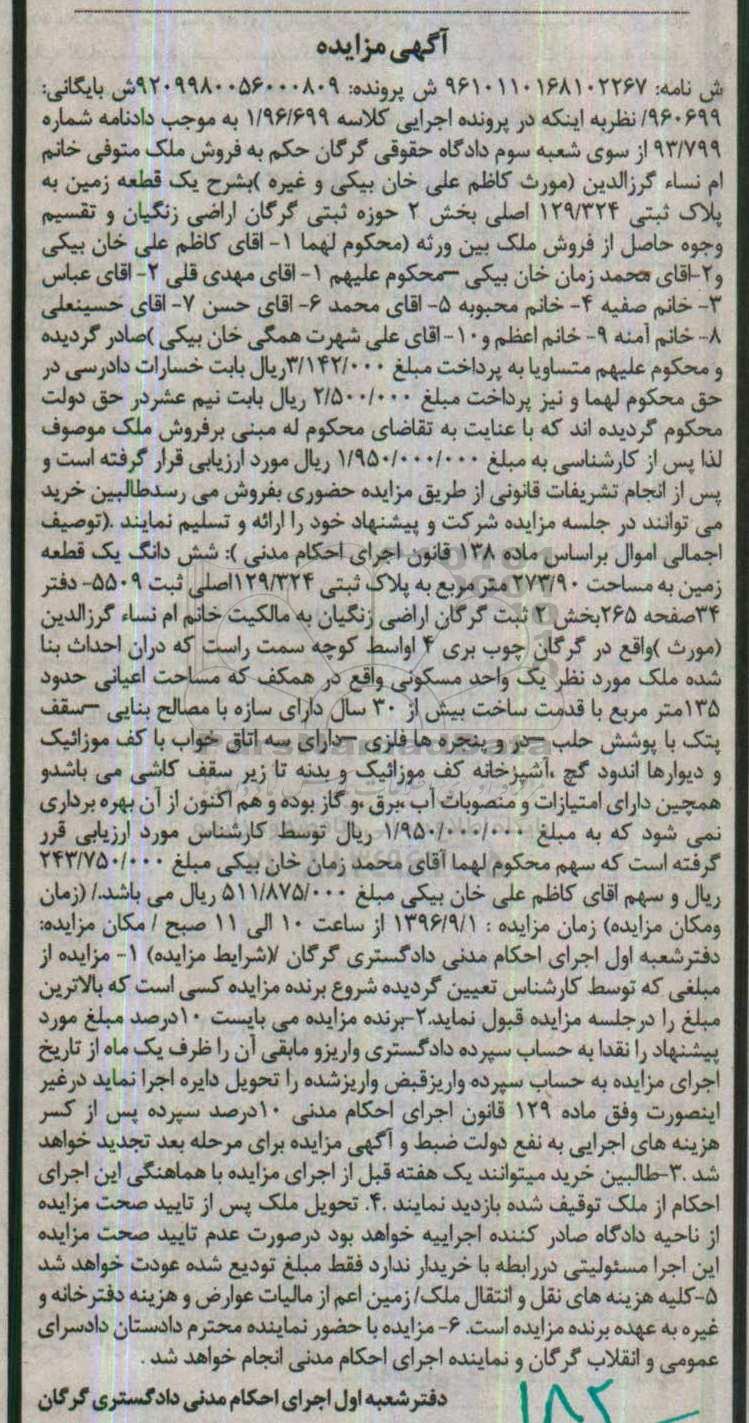 آگهی مزایده
ش نامه: ۹۶۱۰۱۱۰۱۶۸۱۰۲۲۶۷ ش پرونده: ۹۲۰۹۹۸۰۰۵۶۰۰۰۸۰۹ش بایگانی:
۹۶۰۶۹۹/ نظربه اینکه در پرونده اجرایی کلاسه ۱/۹۶/۶۹۹ به موجب دادنامه شماره
۹۳/۷۹۹ از سوی شعبه سوم دادگاه حقوقی گرگان حکم به فروش ملک متوفی خانم
ام نساء گرزالدین (مورث کاظم علی خان بیکی و غیره )بشرح یک قطعه زمین به
پلاک ثبتی ۱۲۹/۳۲۴ اصلی بخش ۲ حوزه ثبتی گرگان اراضی زنگیان و تقسیم
وجوه حاصل از فروش ملک بین ورثه (محکوم لهما ۱- اقای کاظم علی خان بیکی
و۲-اقای محمد زمان خان بیکی –محکوم علیهم ۱- اقای مهدی قلی ۲- اقای عباس
۳- خانم صفیه ۴- خانم محبوبه ۵- اقای محمد ۶- اقای حسن ۷- اقای حسینعلی
۸- خانم آمنه ۹- خانم اعظم و۱۰- اقای علی شهرت همگی خان بیکی )صادر گردیده
و محکوم علیهم متساویا به پرداخت مبلغ ۳/۱۴۲/۰۰۰ریال بابت خسارات دادرسی در
حق محکوم لهما و نیز پرداخت مبلغ ۲/۵۰۰/۰۰۰ ریال بابت نیم عشردر حق دولت
محکوم گردیده اند که با عنایت به تقاضای محکوم له مبنی برفروش ملک موصوف
لذا پس از کارشناسی به مبلغ ۱/۹۵۰/۰۰۰/۰۰۰ ریال مورد ارزیابی قرار گرفته است و
پس از انجام تشریفات قانونی از طریق مزایده حضوری بفروش می رسدطالبین خرید
می توانند در جلسه مزایده شرکت و پیشنهاد خود را ارائه و تسلیم نمایند .(توصیف
اجمالی اموال براساس ماده ۱۳۸ قانون اجرای احکام مدنی ): شش دانگ یک قطعه
زمین به مساحت ۲۷۳/۹۰ متر مربع به پلاک ثبتی ۱۲۹/۳۲۴اصلی ثبت ۵۵۰۹- دفتر
۳۴صفحه ۲۶۵بخش ۲ ثبت گرگان اراضی زنگیان به مالکیت خانم ام نساء گرزالدین
(مورث )واقع در گرگان چوب بری ۴ اواسط کوچه سمت راست که دران احداث بنا
شده ملک مورد نظر یک واحد مسکونی واقع در همکف که مساحت اعیانی حدود
۱۳۵متر مربع با قدمت ساخت بیش از ۳۰ سال دارای سازه با مصالح بنایی –سقف
پتک با پوشش حلب –در و پنجره ها فلزی –دارای سه اتاق خواب با کف موزائیک
و دیوارها اندود گچ ،آشپزخانه کف موزائیک و بدنه تا زیر سقف کاشی می باشدو
همچین دارای امتیازات و منصوبات آب ،برق ،و گاز بوده و هم اکنون از آن بهره برداری
نمی شود که به مبلغ ۱/۹۵۰/۰۰۰/۰۰۰ ریال توسط کارشناس مورد ارزیابی قرر
گرفته است که سهم محکوم لهما آقای محمد زمان خان بیکی مبلغ ۲۴۳/۷۵۰/۰۰۰
ریال و سهم اقای کاظم علی خان بیکی مبلغ ۵۱۱/۸۷۵/۰۰۰ ریال می باشد./ (زمان
ومکان مزایده) زمان مزایده : ۱۳۹۶/۹/۱ از ساعت ۱۰ الی ۱۱ صبح / مکان مزایده:
دفترشعبه اول اجرای احکام مدنی دادگستری گرگان /(شرایط مزایده) ۱- مزایده از
مبلغی که توسط کارشناس تعیین گردیده شروع برنده مزایده کسی است که بالاترین
مبلغ را درجلسه مزایده قبول نماید.۲-برنده مزایده می بایست ۱۰درصد مبلغ مورد
پیشنهاد را نقدا به حساب سپرده دادگستری واریزو مابقی آن را ظرف یک ماه از تاریخ
اجرای مزایده به حساب سپرده واریزقبض واریزشده را تحویل دایره اجرا نماید درغیر
اینصورت وفق ماده ۱۲۹ قانون اجرای احکام مدنی ۱۰درصد سپرده پس از کسر
هزینه های اجرایی به نفع دولت ضبط و آگهی مزایده برای مرحله بعد تجدید خواهد
شد .۳-طالبین خرید میتوانند یک هفته قبل از اجرای مزایده با هماهنگی این اجرای
احکام از ملک توقیف شده بازدید نمایند .۴. تحویل ملک پس از تایید صحت مزایده
از ناحیه دادگاه صادر کننده اجراییه خواهد بود درصورت عدم تایید صحت مزایده
این اجرا مسئولیتی دررابطه با خریدار ندارد فقط مبلغ تودیع شده عودت خواهد شد
۵-کلیه هزینه های نقل و انتقال ملک/ زمین اعم از مالیات عوارض و هزینه دفترخانه و
غیره به عهده برنده مزایده است. ۶- مزایده با حضور نماینده محترم دادستان دادسرای
عمومی و انقلاب گرگان و نماینده اجرای احکام مدنی انجام خواهد شد .
دفترشعبه اول اجرای احکام مدنی دادگستری گرگان
۱۸۲